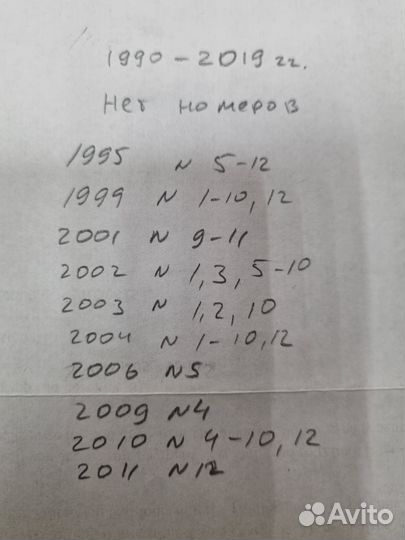 1990-2019 гг.
Нет номеров
1995 N 5-12
1999 N 1-10, 12
2001 N 9-11
2002 N 1, 3, 5-10
2003 N 1, 2, 10
2004 N 1-10, 12
2006 N5
2009 N4
2010 N 4-10, 12
2011 N12
Avito